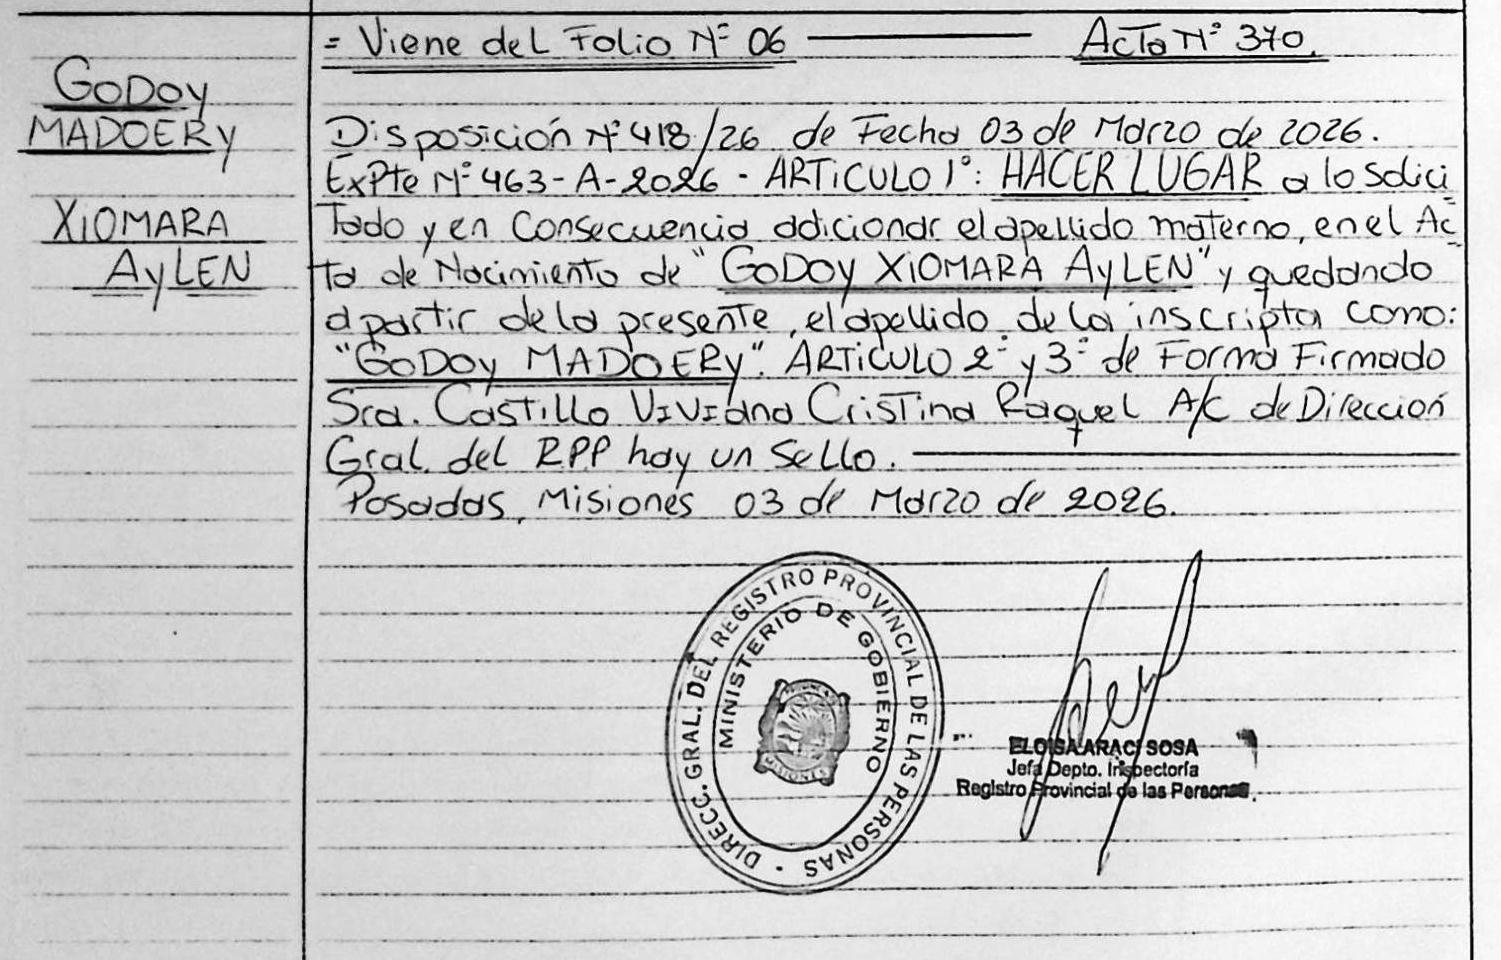 = Viene del Folio Nº 06 ——— Acta Nº 370.
GODOY
MADOERY
XIOMARA
AYLEN
Disposición Nº 418/26 de Fecha 03 de Marzo de 2026.
ExPte Nº 463-A-2026 - ARTICULO 1º: HACER LUGAR a lo solici
tado y en Consecuencia adicionar el apellido materno, en el Ac
ta de Nacimiento de "GODOY XIOMARA AYLEN" y quedando
a partir de la presente, el apellido de la inscripta como:
"GODOY MADOERY". ARTICULO 2º y 3º de Forma Firmado
Sra. Castillo Viviana Cristina Raquel A/C de Dirección
Gral. del RPP hay un Sello. ———
Posadas, Misiones 03 de Marzo de 2026.
DIRECC. GRAL. DEL REGISTRO PROVINCIAL DE LAS PERSONAS -
MINISTERIO DE GOBIERNO
MISIONES
ELOISA ARACI SOSA
Jefa Depto. Inspectoría
Registro Provincial de las Personas